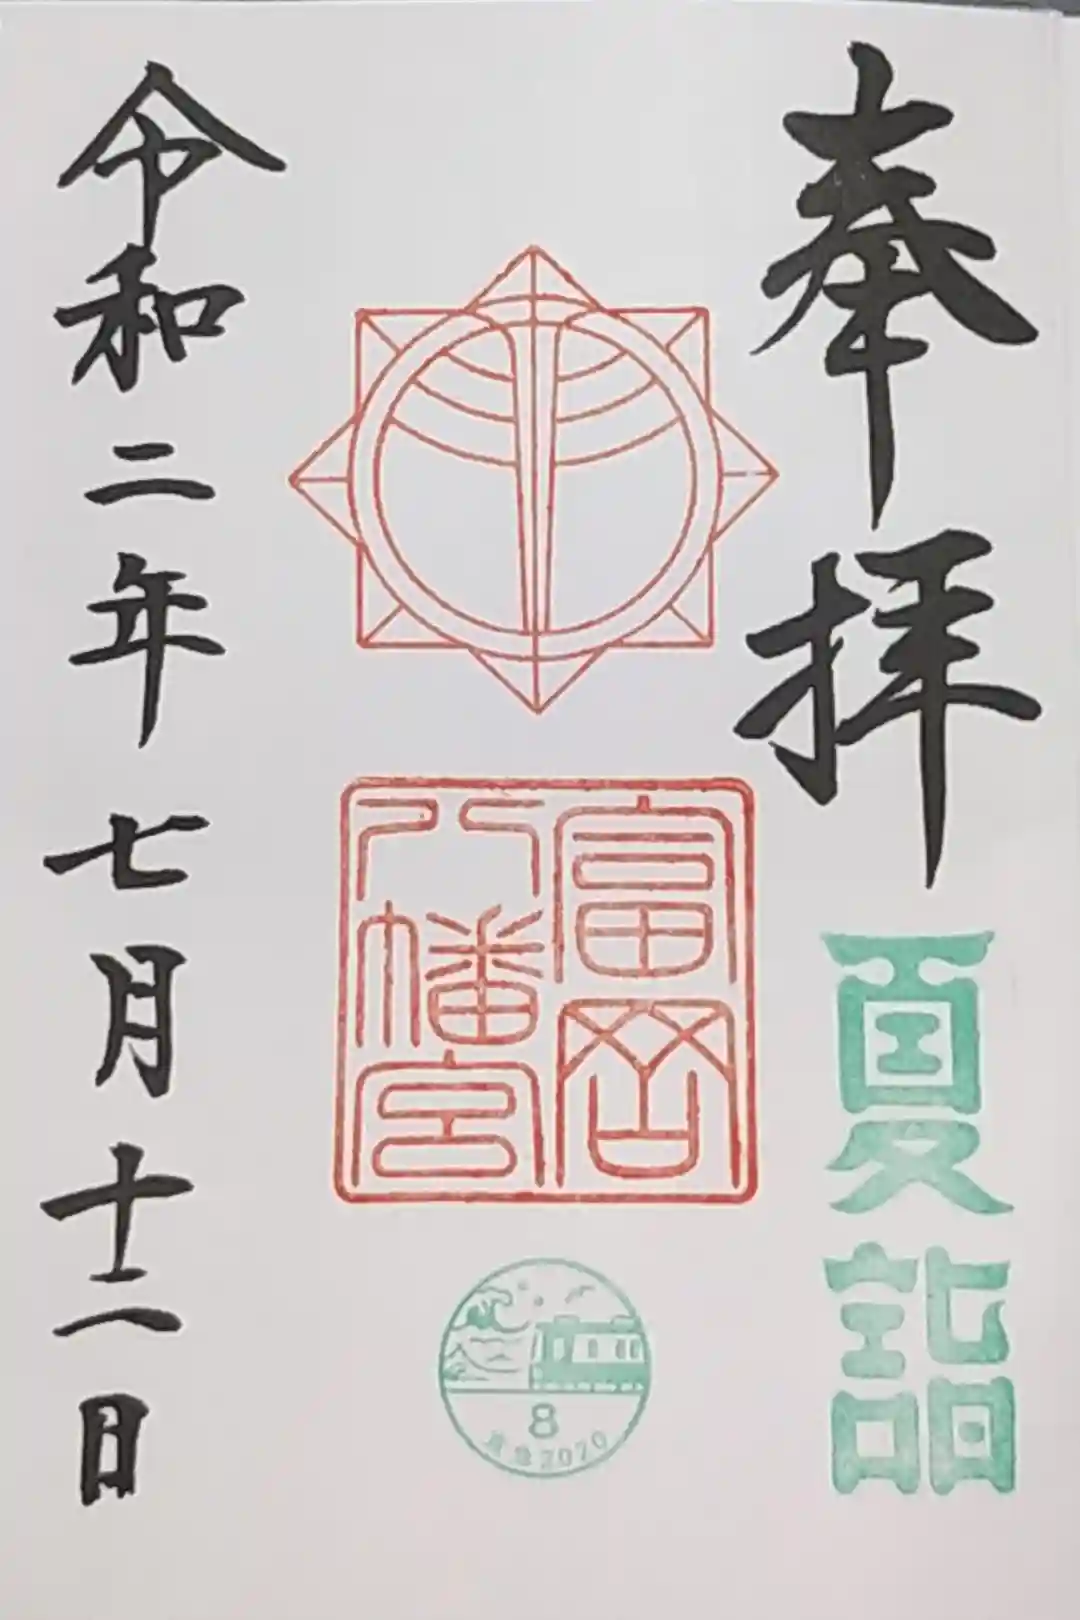 奉拝
夏詣
富岡
八幡宮
8
夏詣2020
令和二年七月十二日